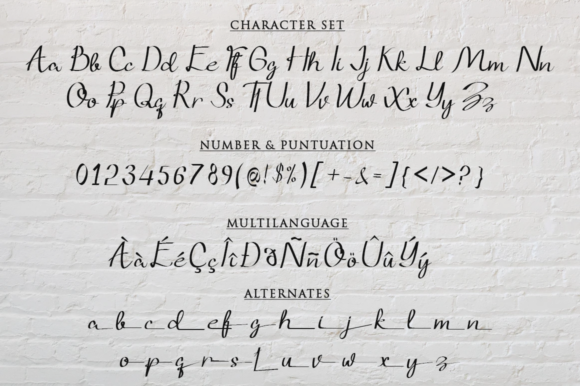 CHARACTER SET
Aa Bb Cc Dd Ee Ff Gg Hh Ii Jj Kk Ll Mm Nn
Oo Pp Qq Rr Ss Tt Uu Vv Ww Xx Yy Zz
NUMBER & PUNTUATION
0123456789(@!$%)[+-&=]{</>?}
MULTILANGUAGE
ÀàÉéÇçÎîÐðÑñÖöÛûÝý
ALTERNATES
a b c d e f g h i j k l m n
o p q r s t u v w x y z